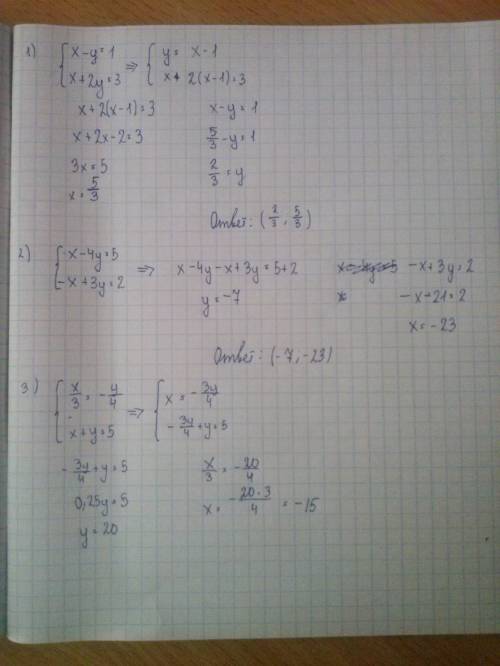 1) { x-y=1 ⇒ { y= x-1
x+2y=3 x+ 2(x-1)=3
x+2(x-1)=3 x-y=1
x+2x-2=3 5/3-y=1
3x=5 2/3=y
x=5/3
Ответ: (2/3, 5/3)
2) { x-4y=5 ⇒ x-4y-x+3y=5+2 x-4y=5 -x+3y=2
-x+3y=2 y=-7 x -x-21=2
x=-23
Ответ: (-7,-23)
3) { x/3=-y/4 ⇒ { x=-3y/4
x+y=5 -3y/4+y=5
-3y/4+y=5 x/3=-20/4
0,25y=5 x=-20·3/4=-15
y=20